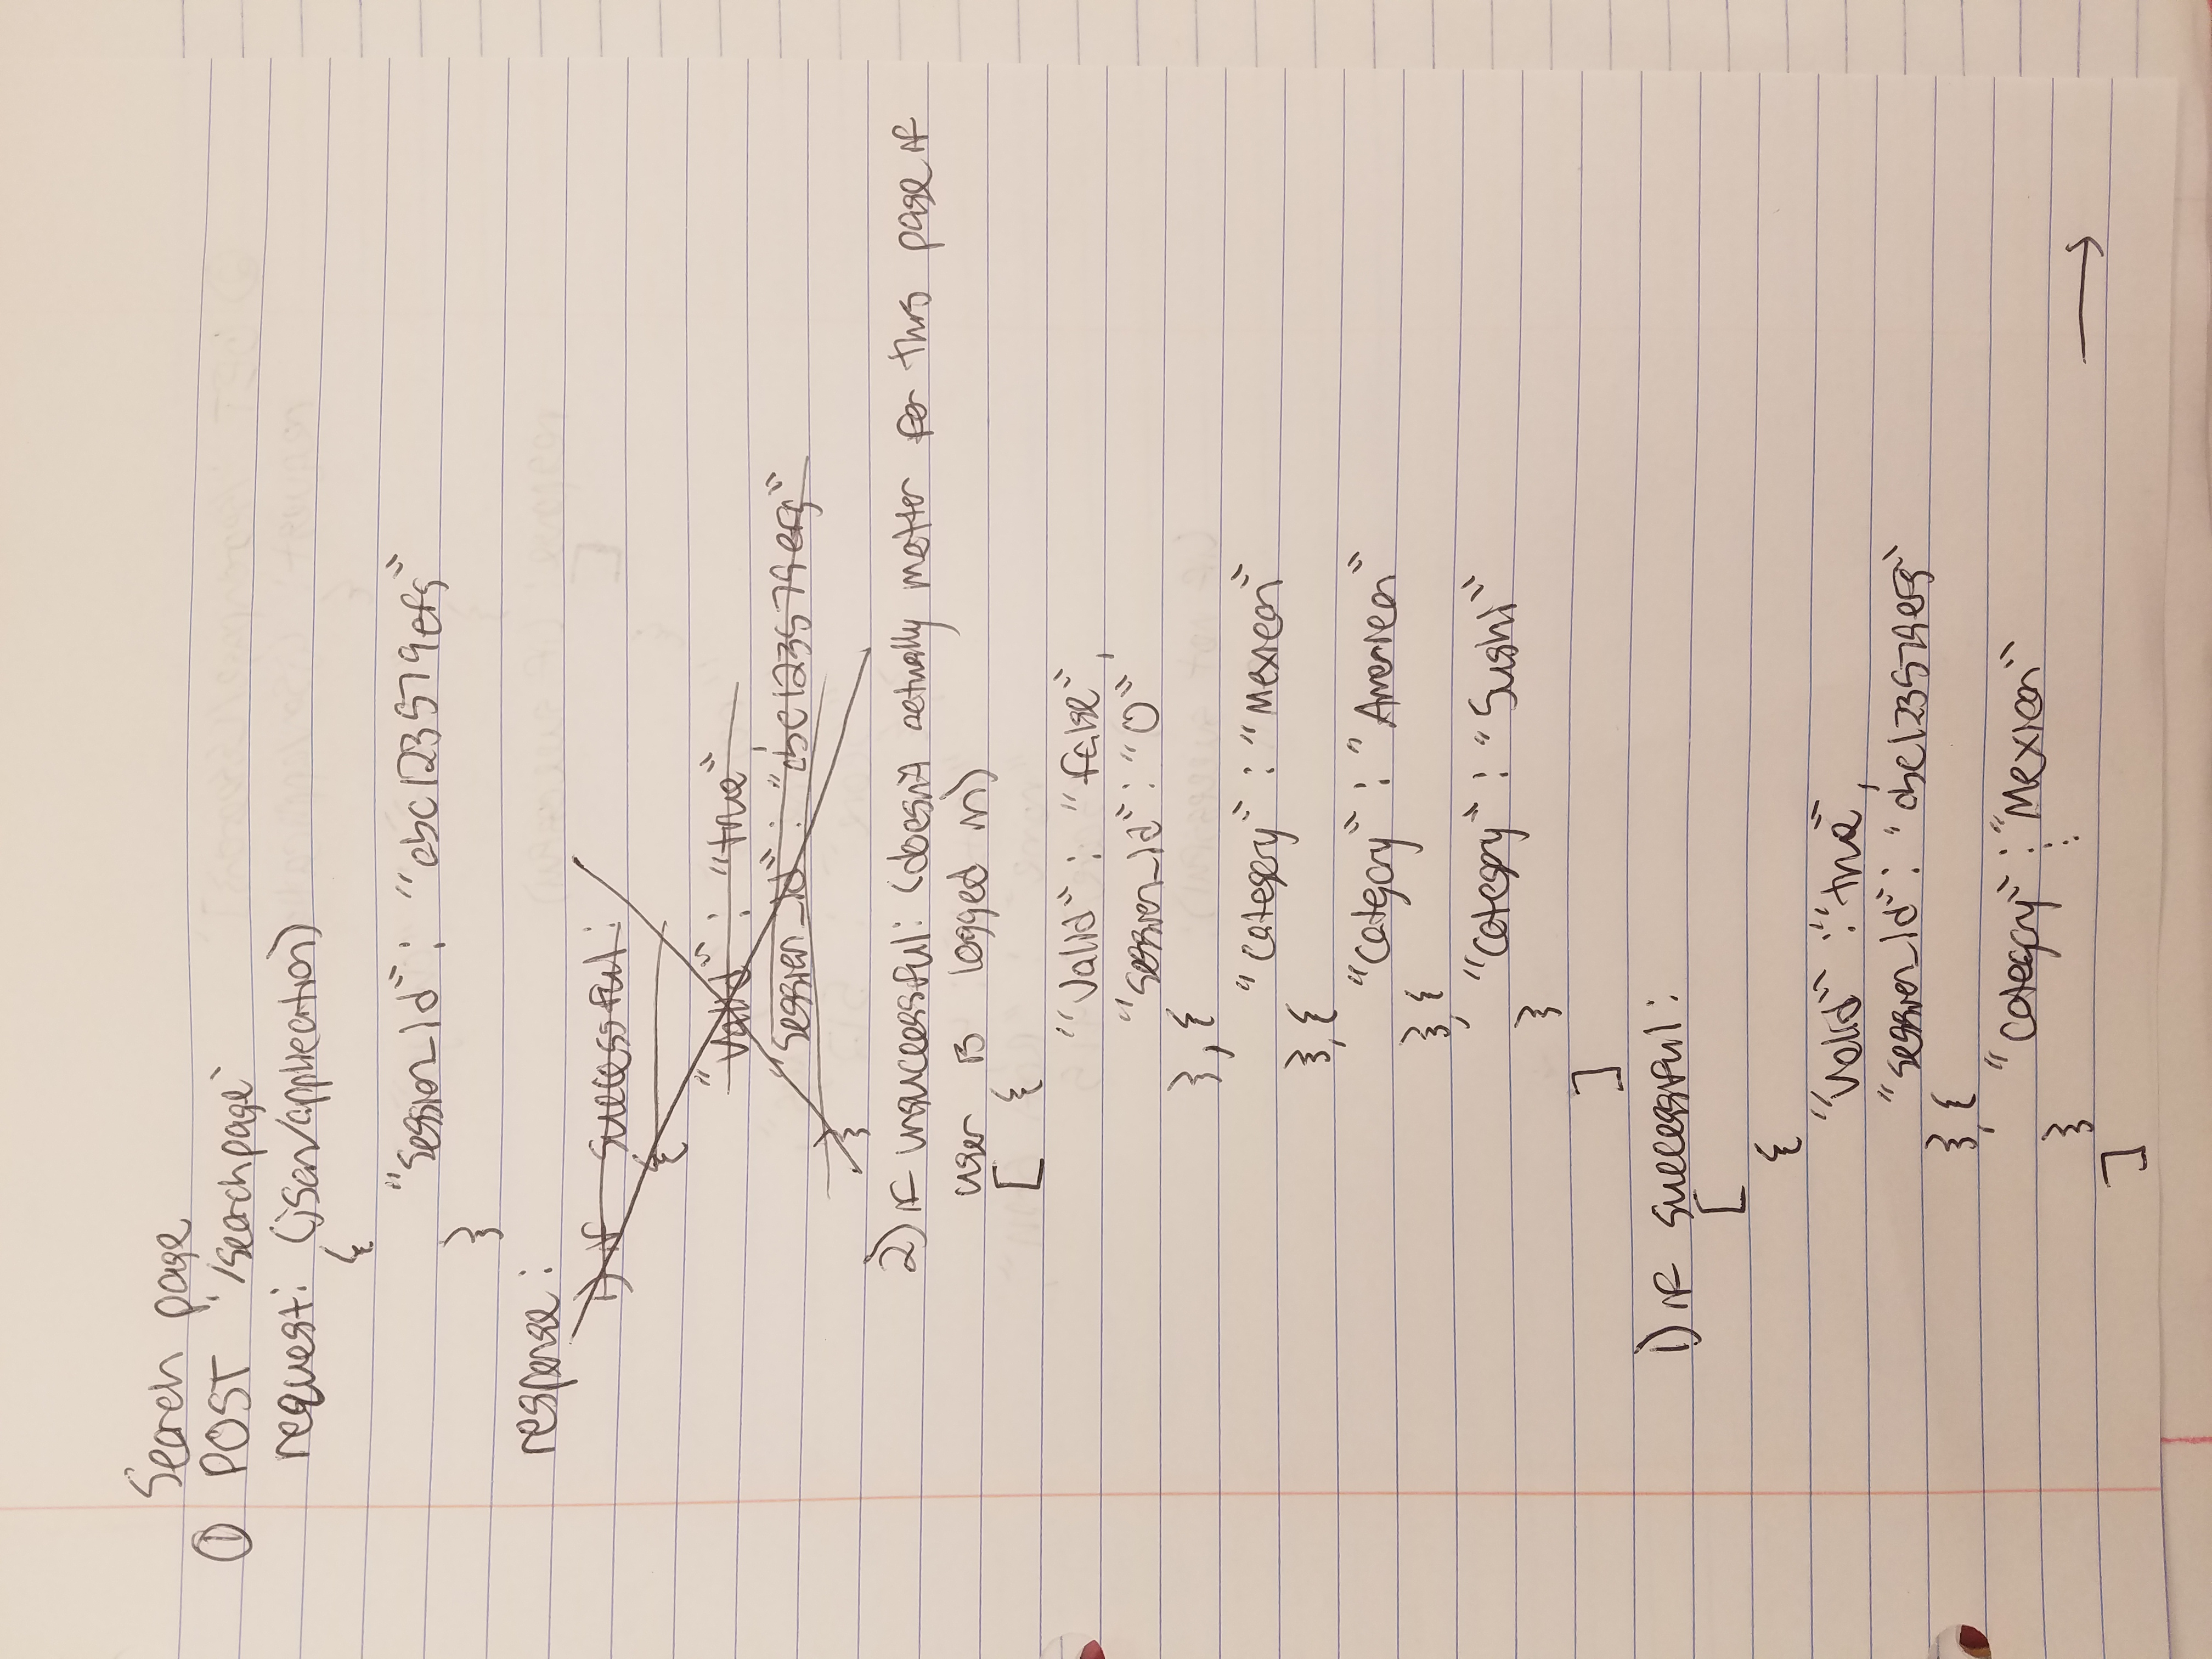 Search page
① POST '/searchpage'
request: (json/application)
{
"Session_Id": "abc123579efg"
}
response:
1) if successful:
{
"Valid": "true",
"Session_Id": "abc123579efg"
}
2) if unsuccessful: (doesn't actually matter for this page if
user is logged in)
[ {
"Valid": "false",
"Session_Id": "0"
}, {
"Category": "Mexican"
}, {
"Category": "American"
}, {
"Category": "Sushi"
}
]
1) if successful:
[
{
"Valid": "true",
"Session_Id": "abc123579efg"
}, {
"Category": "Mexican"
⋮
} →
]